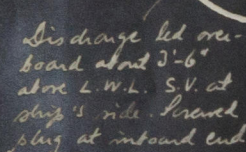 Discharge led over-
board about 3'-6"
above L.W.L. S.V. at
ship's side. Screwed
plug at inboard end